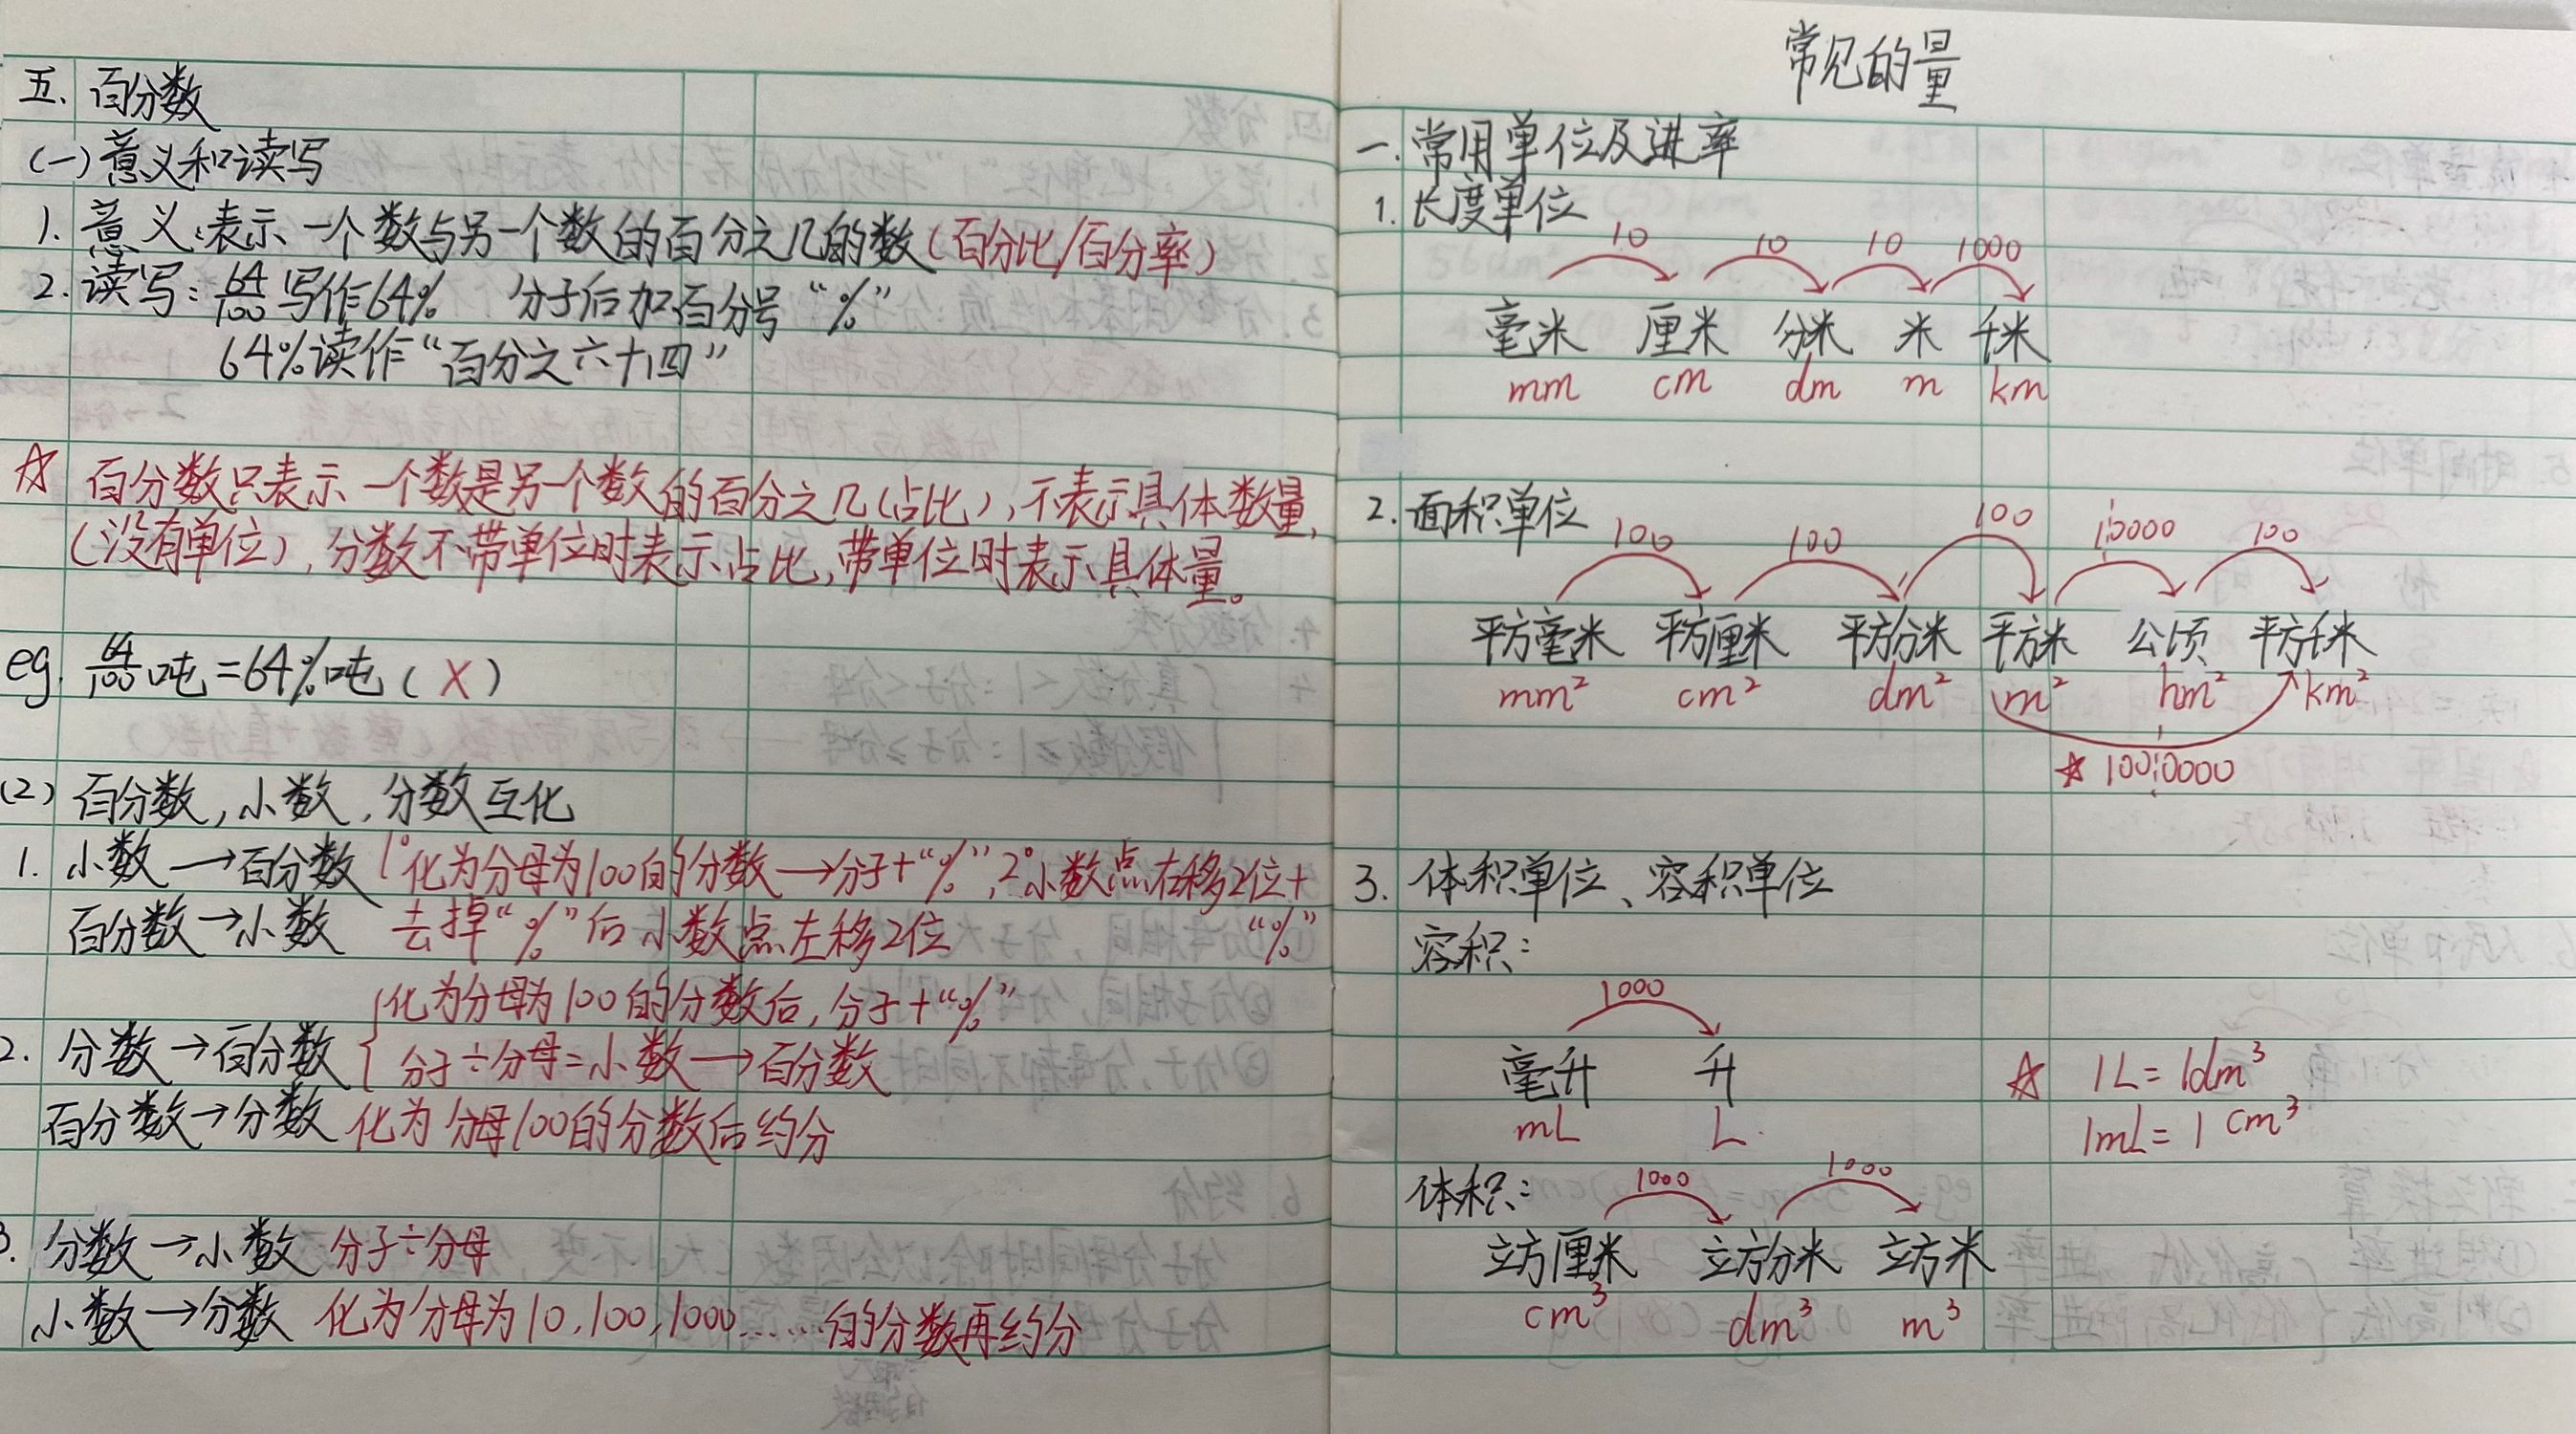 五. 百分数
(一)意义和读写
1. 意义:表示一个数与另一个数的百分之几的数(百分比/百分率)
2. 读写: 64/100 写作64% 分子后加百分号“%”
64%读作“百分之六十四”
☆ 百分数只表示一个数是另一个数的百分之几(占比),不表示具体数量,
(没有单位),分数不带单位时表示占比,带单位时表示具体量。
eg. 64/100吨=64%吨(X)
(2) 百分数,小数,分数互化
1. 小数→百分数 1°化为分母为100的分数→分子+“%”,2°小数点右移2位+“%”
百分数→小数 去掉“%”后小数点左移2位
化为分母为100的分数后,分子+“%”
2. 分数→百分数 { 分子÷分母=小数→百分数
百分数→分数 化为分母100的分数后约分
3. 分数→小数 分子÷分母
小数→分数 化为分母为10,100,1000……的分数再约分
常见的量
一. 常用单位及进率
1. 长度单位
10 10 10 1000
毫米 厘米 分米 米 千米
mm cm dm m km
2. 面积单位
100 100 100 10000 100
平方毫米 平方厘米 平方分米 平方米 公顷 平方千米
mm² cm² dm² m² hm² km²
☆ 1000000
3. 体积单位、容积单位
容积:
1000
毫升 升
mL L
☆ 1L=1dm³
1mL=1cm³
体积:
1000 1000
立方厘米 立方分米 立方米
cm³ dm³ m³